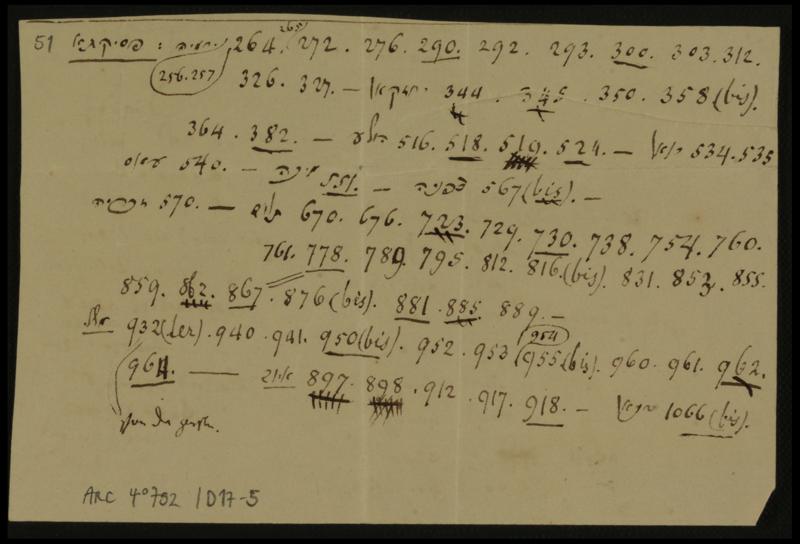 51 פסיקתא : ישעיה 264. 265 272. 276. 290. 292. 293. 300. 303. 312.
256.257
326. 327. — 344. 345. 350. 358 (bis).
364. 382. — הושע 516. 518. 519. 524. — יואל 534.535
עמוס 540. — מיכה 551. — צפניה 567 (bis). —
זכריה 570. — תלים 670. 676. 723. 729. 730. 738. 754. 760.
761. 778. 789. 795. 812. 816. (bis). 831. 853. 855.
859. 862. 867. 876 (bis). 881. 885. 889. —
משלי 932 (ter). 940. 941. 950 (bis). 952. 953 (954) 955 (bis). 960. 961. 962.
964. — איוב 897. 898. 912. 917. 918. — 1066 (bis).
ARC 4°792 / D17-5